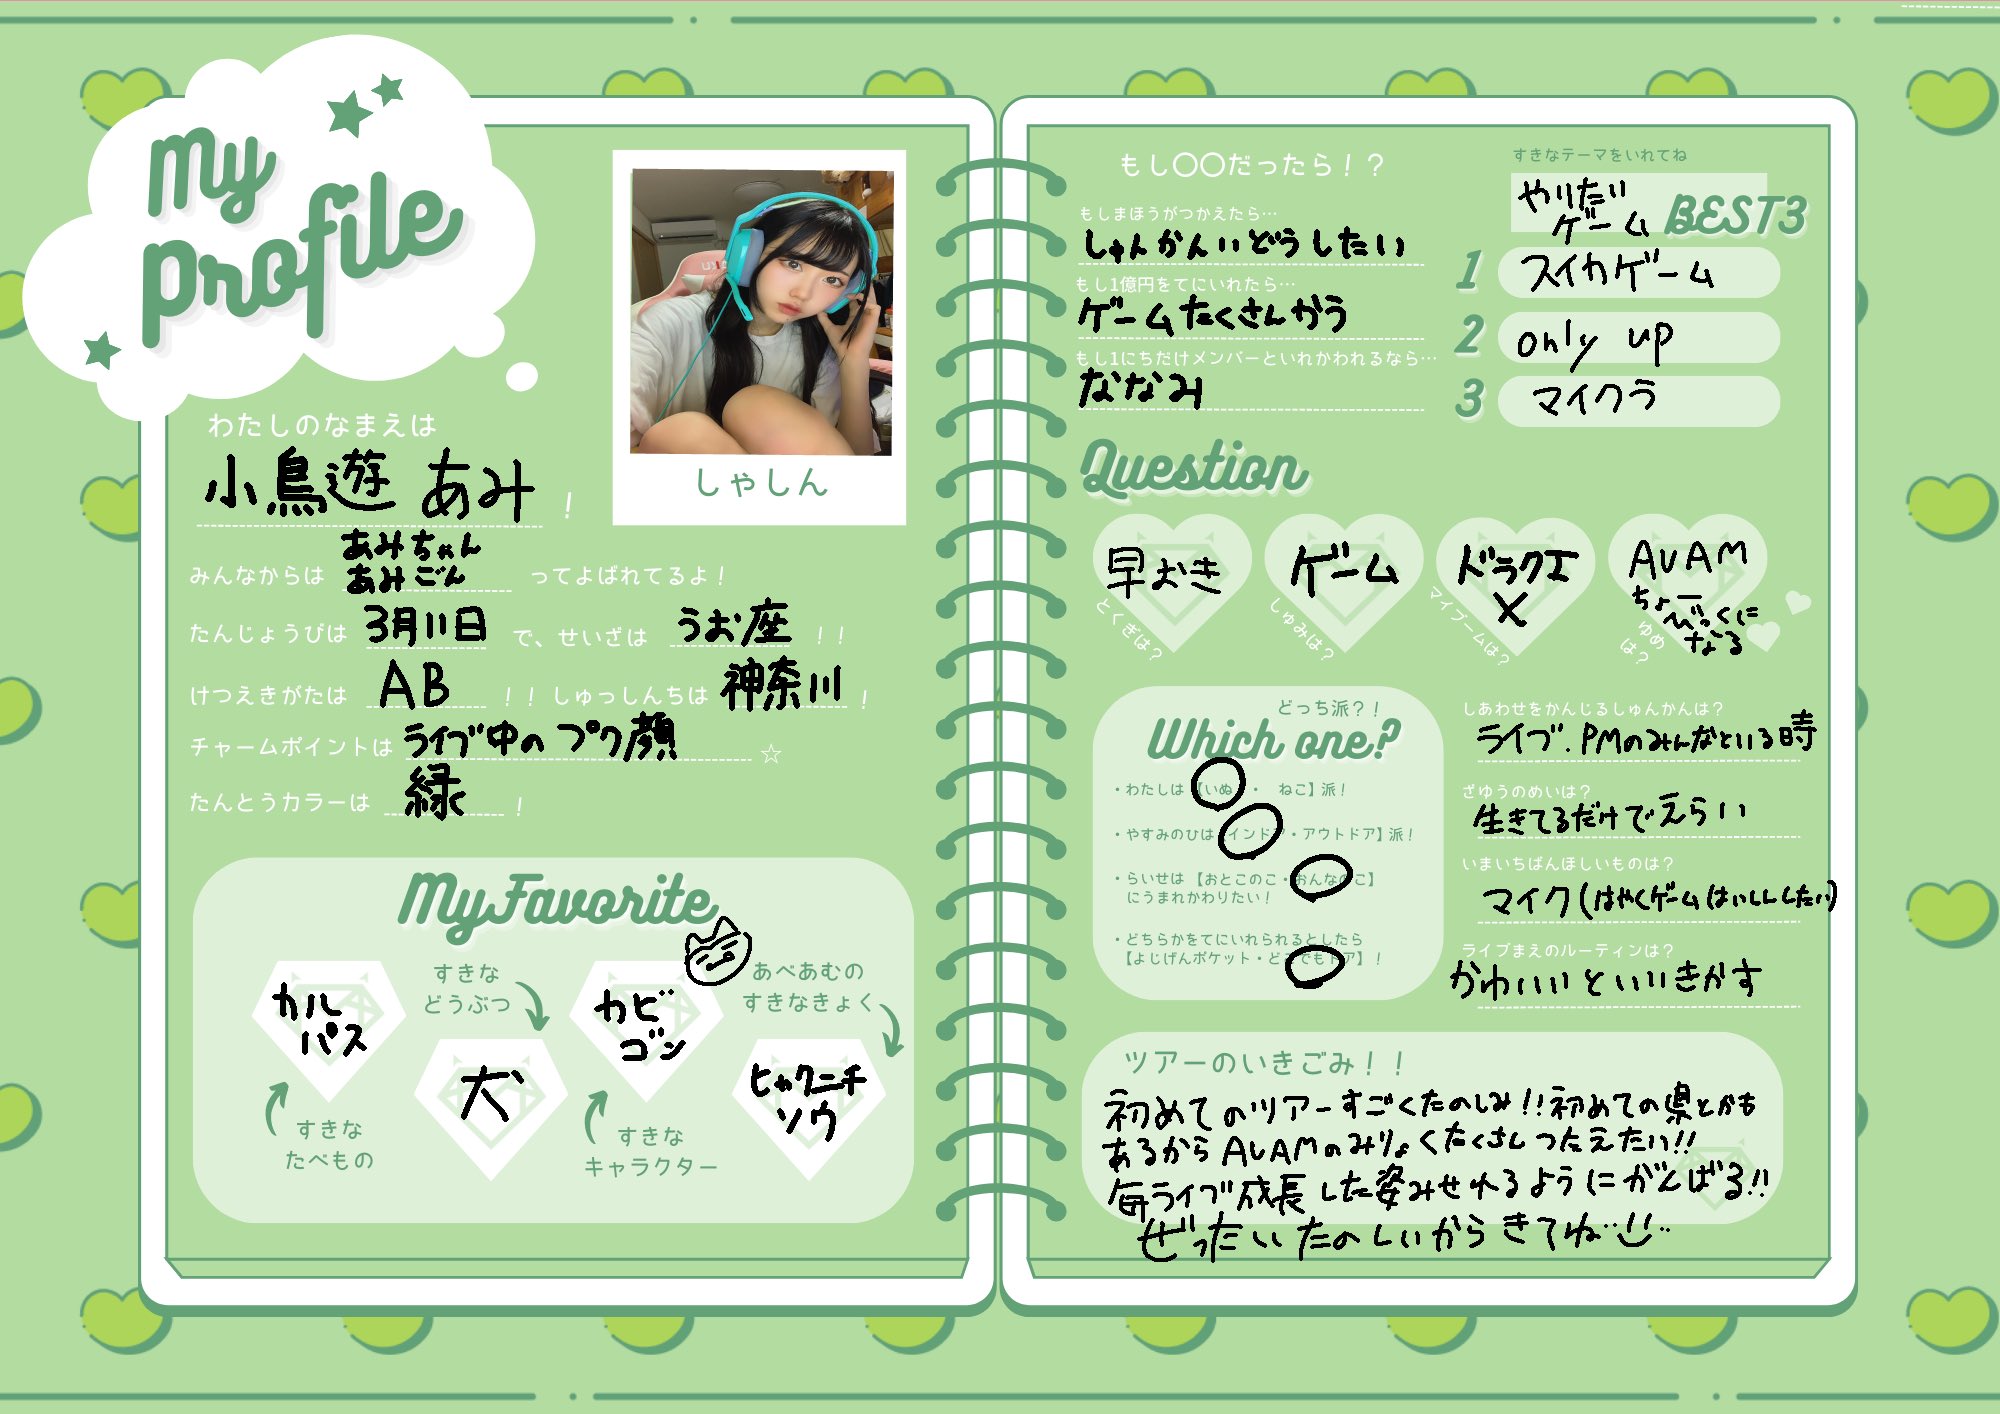 My
Profile
わたしのなまえは
小鳥遊 あみ！
みんなからは あみちゃん
あみごん ってよばれてるよ！
たんじょうびは 3月11日 で、せいざは うお座 ！！
けつえきがたは AB ！！ しゅっしんちは 神奈川 ！
チャームポイントは ライブ中のプク顔 ☆
たんとうカラーは 緑 ！
しゃしん
My Favorite
カル
パス
すきな
たべもの
すきな
どうぶつ
犬
カビ
ゴン
すきな
キャラクター
あべあむの
すきなきょく
ヒャクニチ
ソウ
もし〇〇だったら！？
もしまほうがつかえたら…
しゅんかんいどうしたい
もし1億円をてにいれたら…
ゲームたくさんかう
もし1にちだけメンバーといれかわれるなら…
ななみ
すきなテーマをいれてね
やりたい
ゲーム BEST3
1 スイカゲーム
2 only up
3 マイクラ
Question
早おき
とくぎは？
ゲーム
しゅみは？
ドラクエ
X
マイブームは？
AVAM
ちょー
びっくに
なる
ゆめ
は？
どっち派？！
Which one?
・わたしは【いぬ ・ ねこ】派！
・やすみのひは【インドア・アウトドア】派！
・らいせは【おとこのこ・おんなのこ】
にうまれかわりたい！
・どちらかをてにいれられるとしたら
【よじげんポケット・どこでもドア】！
しあわせをかんじるしゅんかんは？
ライブ．PMのみんなといる時
ざゆうのめいは？
生きてるだけでえらい
いまいちばんほしいものは？
マイク(はやくゲームはいしんしたい)
ライブまえのルーティンは？
かわいいといいきかす
ツアーのいきごみ！！
初めてのツアーすごくたのしみ!!初めての県とかも
あるからAVAMのみりょくたくさんつたえたい!!
毎ライブ成長した姿みせれるようにがんばる!!
ぜったいたのしいからきてね